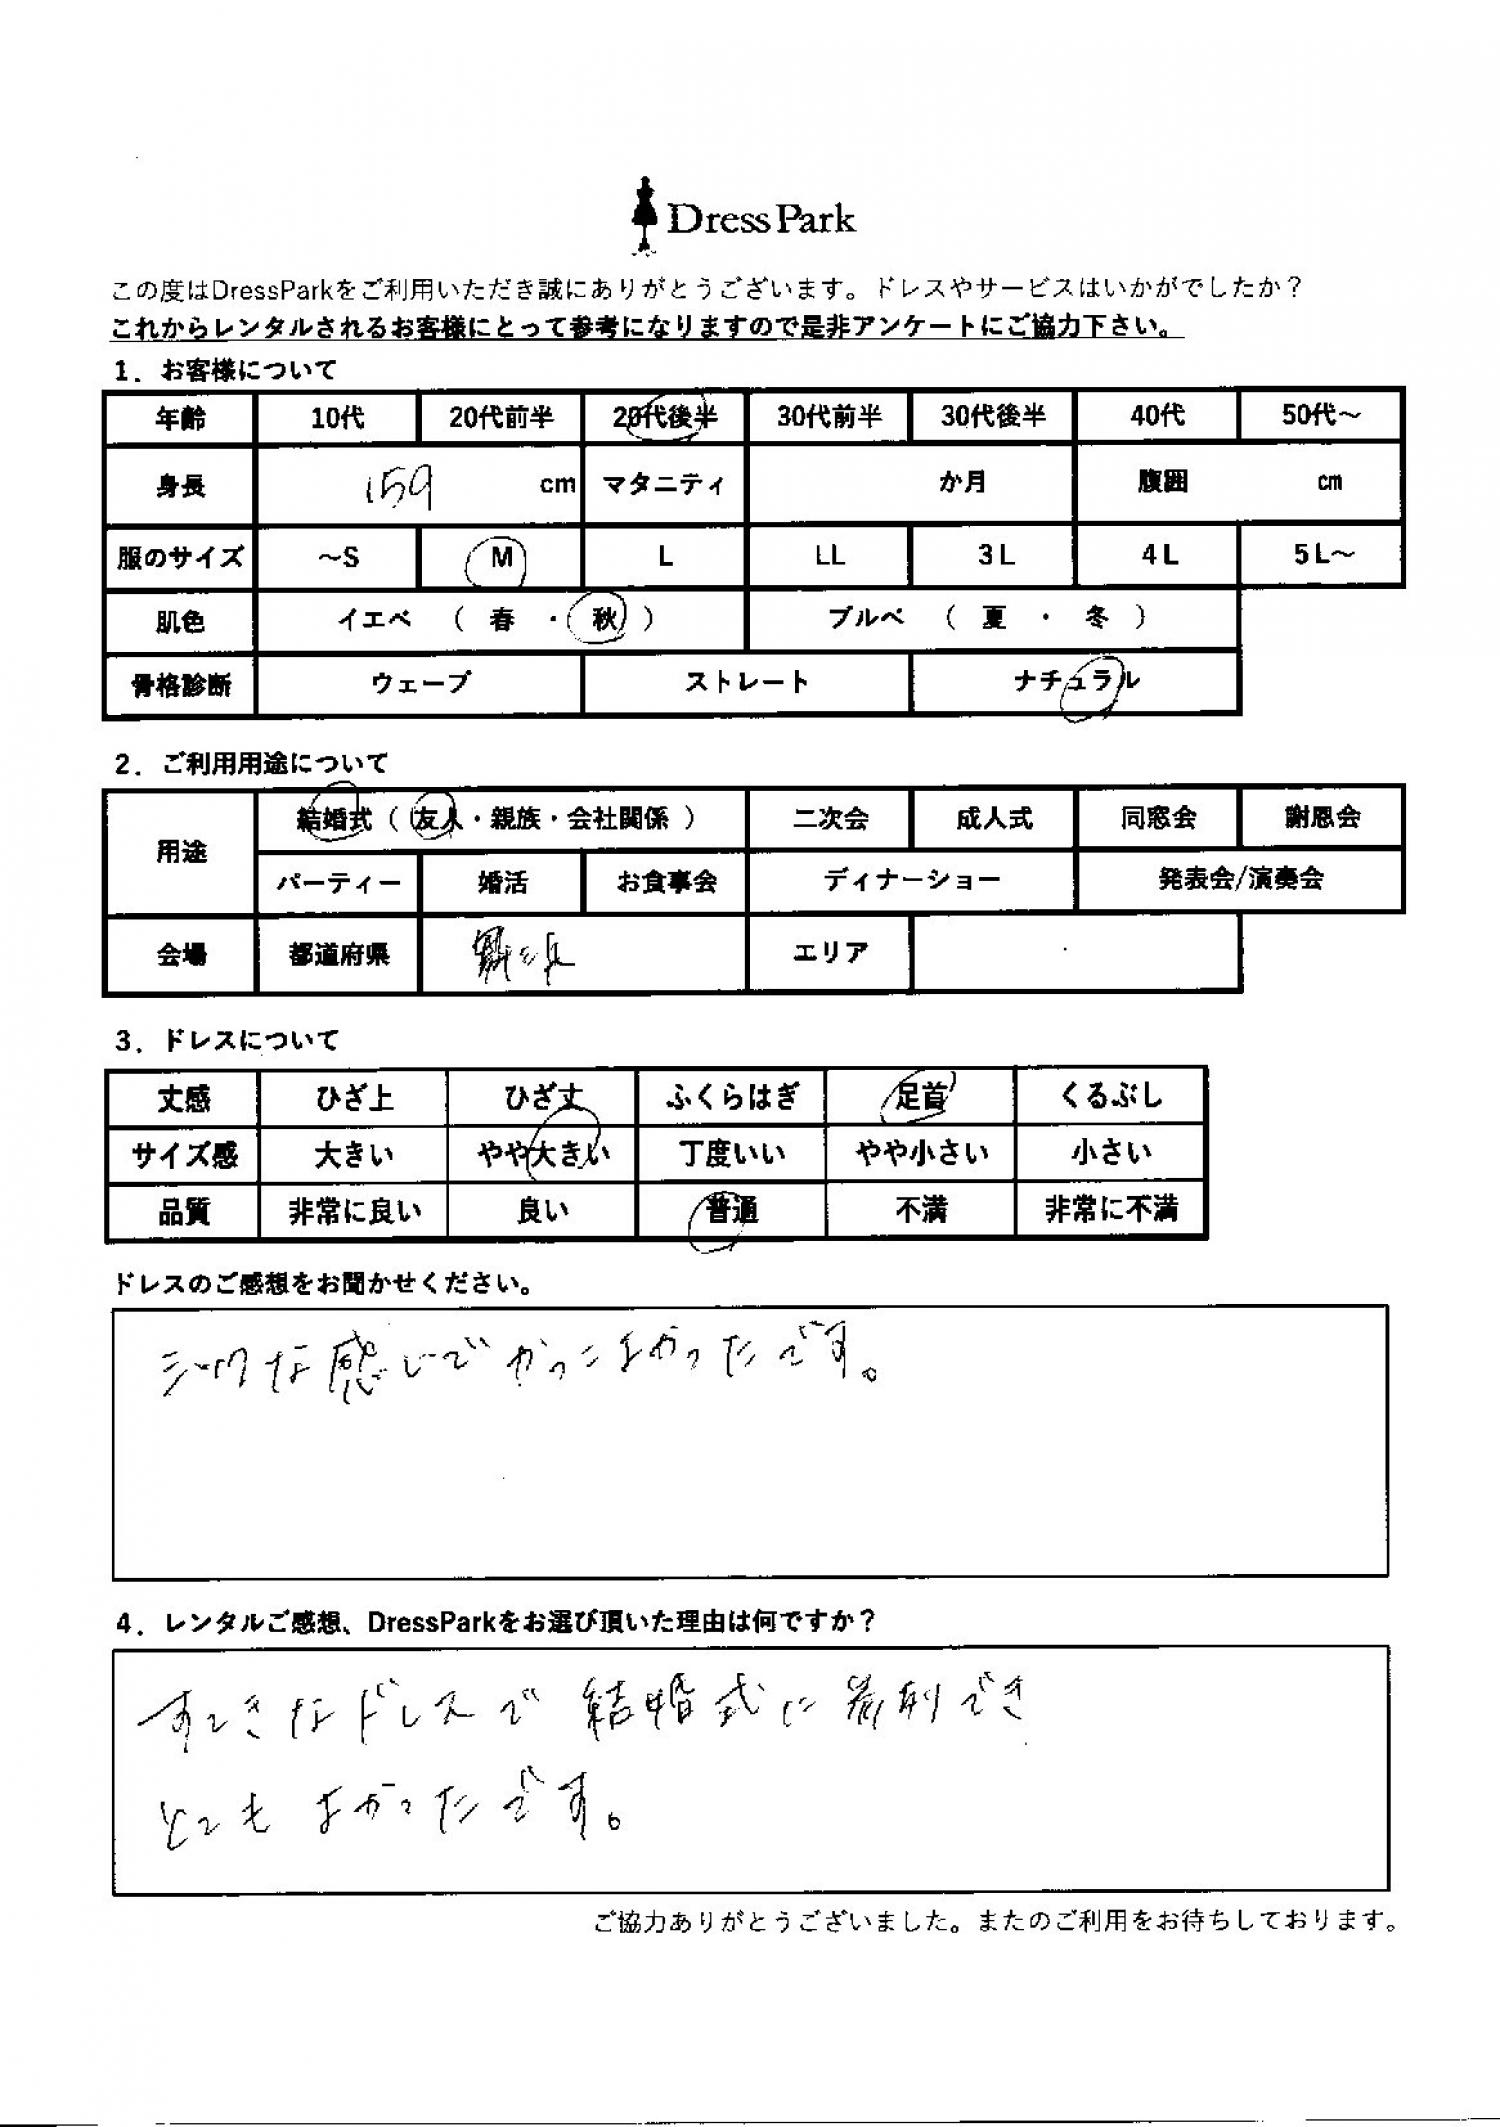 Dress Park
この度はDressParkをご利用いただき誠にありがとうございます。ドレスやサービスはいかがでしたか？
これからレンタルされるお客様にとって参考になりますので是非アンケートにご協力下さい。
1．お客様について
年齢 10代 20代前半 20代後半 30代前半 30代後半 40代 50代～
身長 159 cm マタニティ か月 腹囲 cm
服のサイズ ～S M L LL 3L 4L 5L～
肌色 イエベ （ 春 ・ 秋 ） ブルベ （ 夏 ・ 冬 ）
骨格診断 ウェーブ ストレート ナチュラル
2．ご利用用途について
用途 結婚式（ 友人・親族・会社関係 ） 二次会 成人式 同窓会 謝恩会
パーティー 婚活 お食事会 ディナーショー 発表会/演奏会
会場 都道府県 エリア
3．ドレスについて
丈感 ひざ上 ひざ丈 ふくらはぎ 足首 くるぶし
サイズ感 大きい やや大きい 丁度いい やや小さい 小さい
品質 非常に良い 良い 普通 不満 非常に不満
ドレスのご感想をお聞かせください。
シックな感じでかっこよかったです。
4．レンタルご感想、DressParkをお選び頂いた理由は何ですか？
すてきなドレスで結婚式に参列でき
とてもよかったです。
ご協力ありがとうございました。またのご利用をお待ちしております。